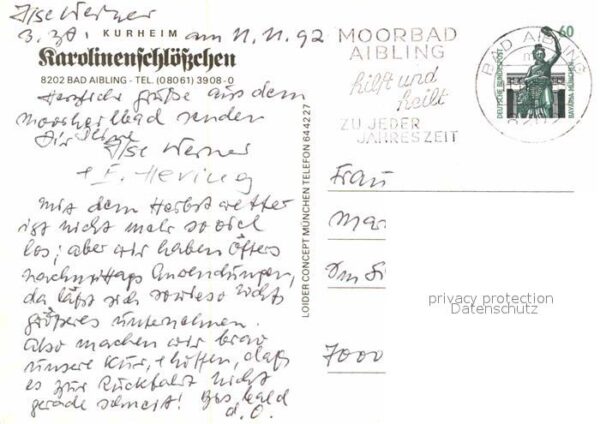 Ilse Werner
z. Zt. am 11.11.92
KURHEIM
Karolinenschlößchen
8202 BAD AIBLING - TEL. (08061) 3908-0
Herzliche Grüße aus dem
Moorheilbad senden
Dir
Ilse Werner
+ E. Hering
Mit dem Herbstwetter
ist nicht mehr so viel
los; aber wir haben öfters
nachmittags Anwendungen,
da läßt sich sowieso nichts
größeres unternehmen.
Also machen wir brav
unsere Kur, + hoffen, daß
es zur Rückfahrt nicht
gerade schneit! Bis bald
d. O.
LOIDER CONCEPT MÜNCHEN TELEFON 644227
MOORBAD
AIBLING
hilft und
heilt
ZU JEDER
JAHRESZEIT
BAD AIBLING
60
DEUTSCHE BUNDESPOST
BAVARIA MÜNCHEN
Frau
Mar
Am
7000
privacy protection
Datenschutz